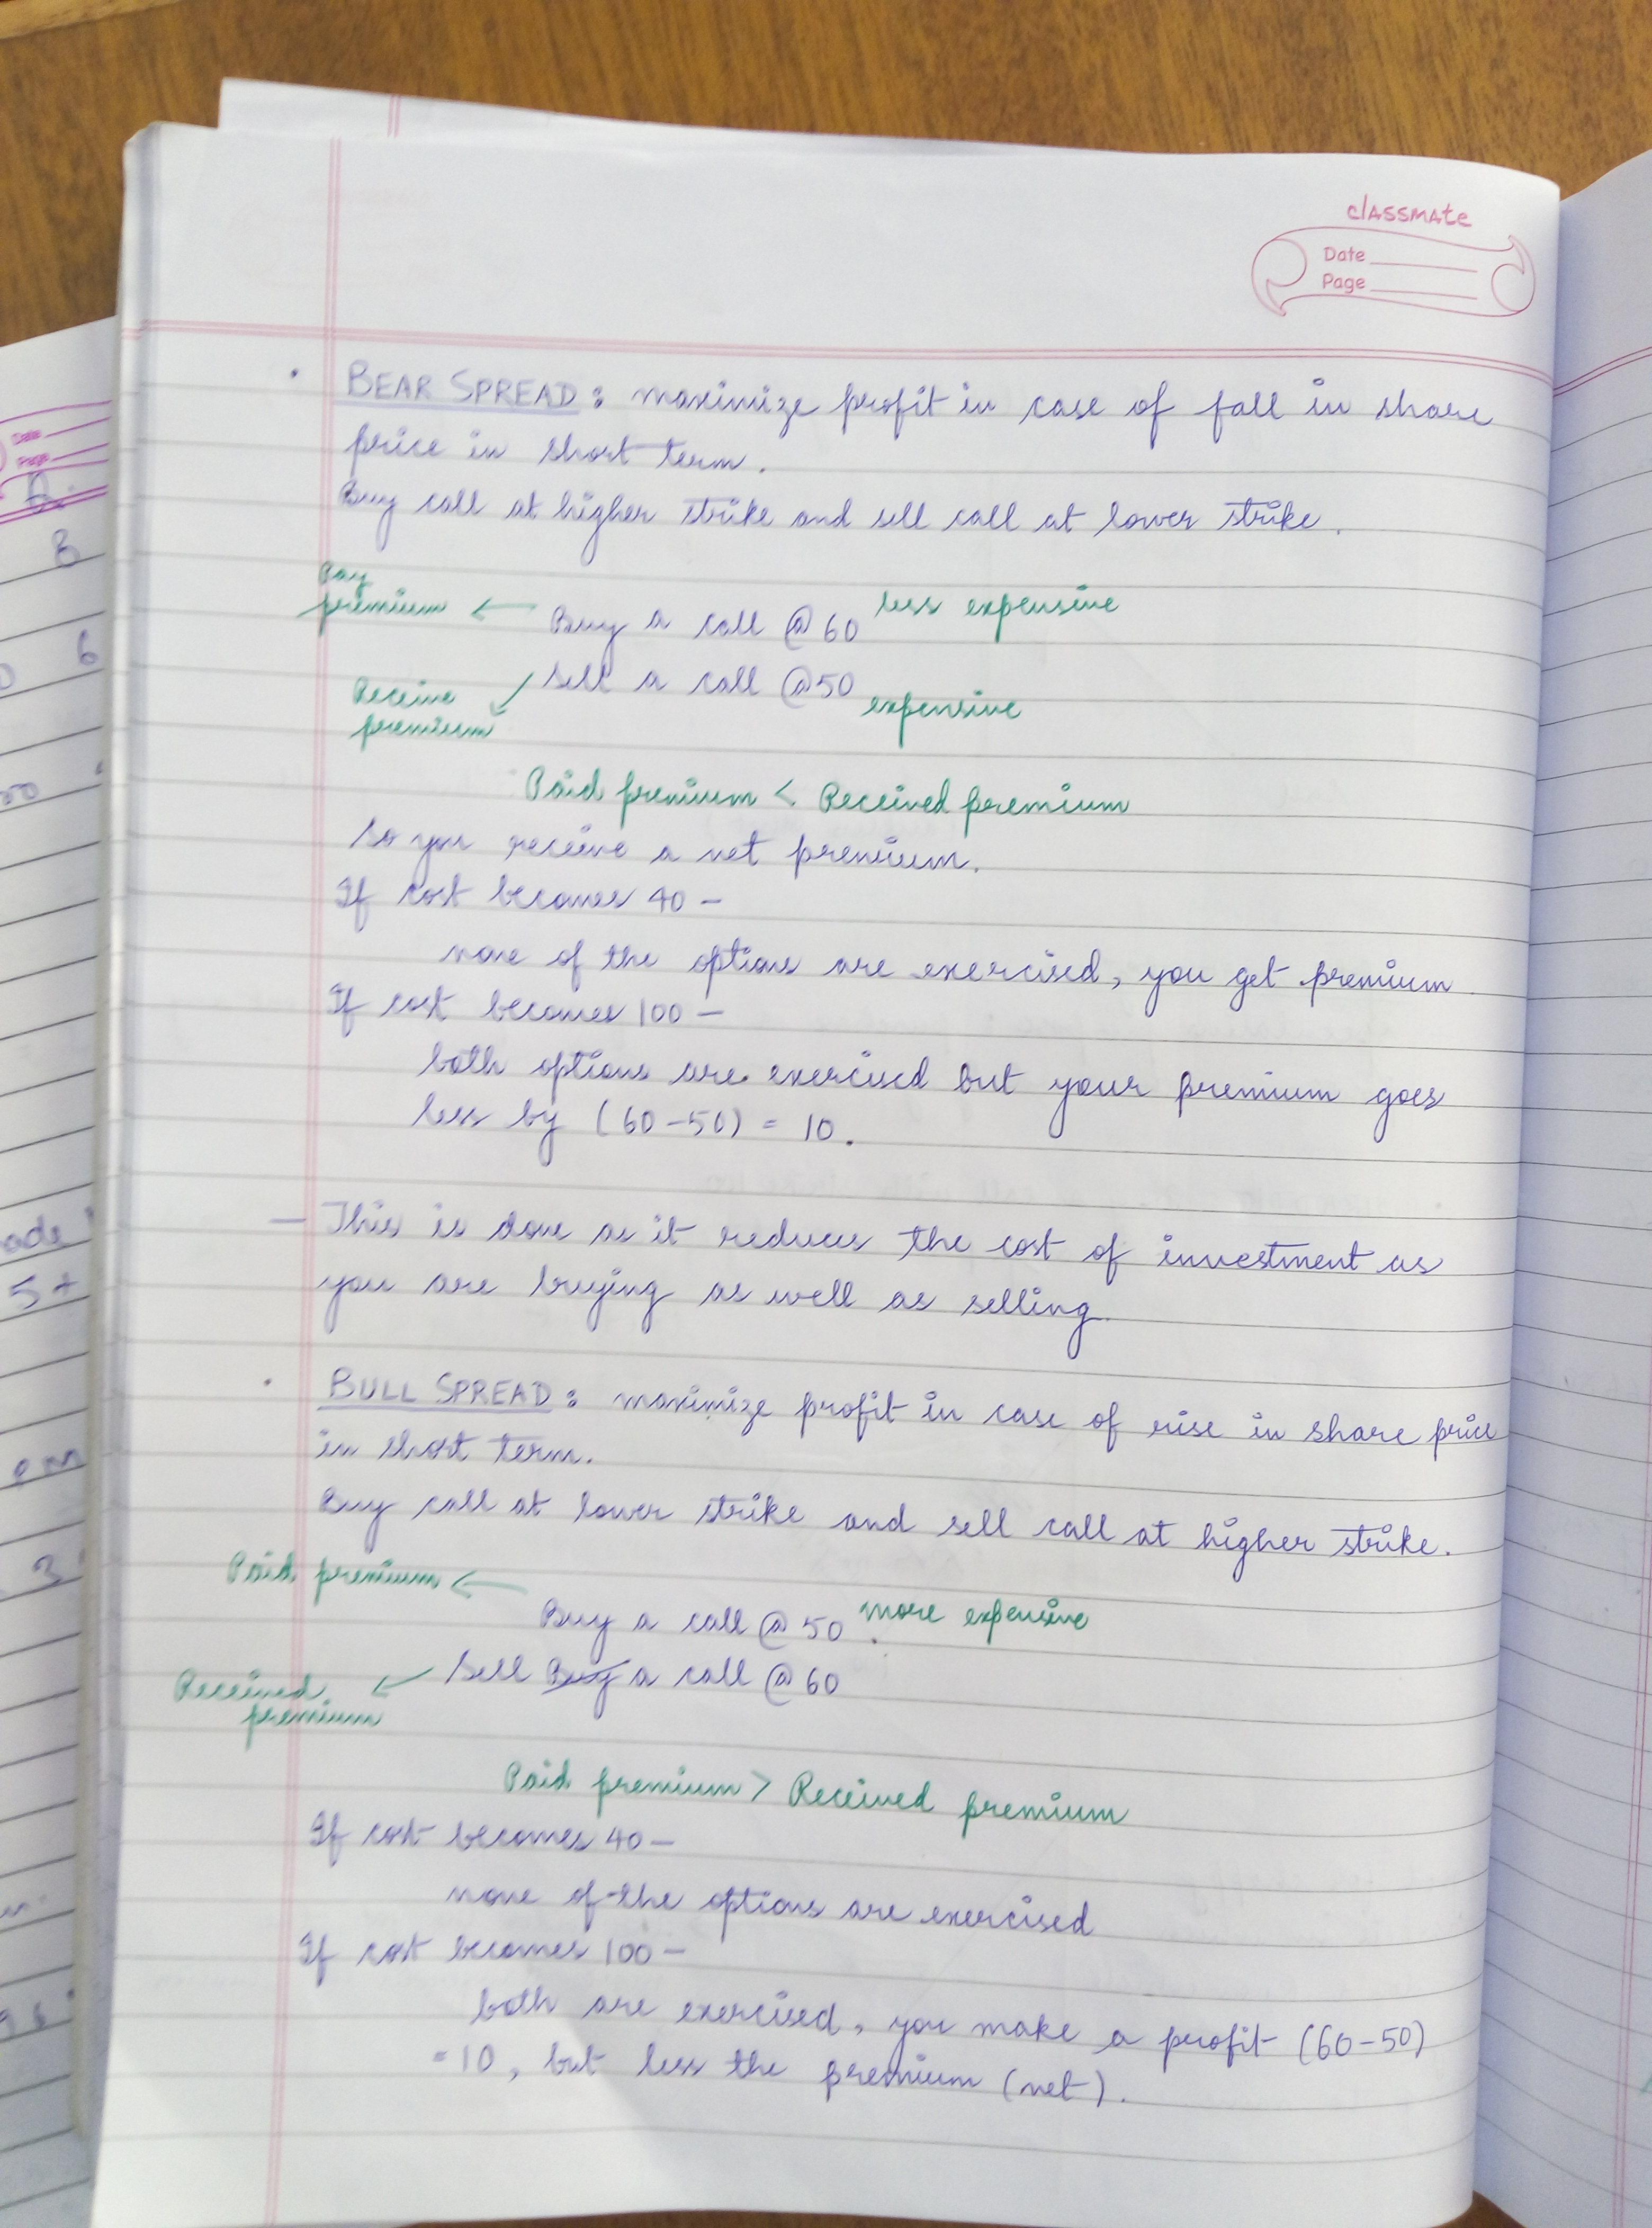 classmate
Date
Page
• BEAR SPREAD: maximize profit in case of fall in share
price in short term.
Buy call at higher strike and sell call at lower strike.
Pay
premium ← Buy a call @ 60 less expensive
Sell a call @50 expensive
Receive
premium
Paid premium < Received premium
So you receive a net premium.
If cost becomes 40 –
none of the options are exercised, you get premium
If cost becomes 100 –
both options are exercised but your premium goes
less by (60-50) = 10.
– This is done as it reduces the cost of investment as
you are buying as well as selling.
• BULL SPREAD: maximize profit in case of rise in share price
in short term.
Buy call at lower strike and sell call at higher strike.
Paid premium ← Buy a call @ 50 more expensive
Sell Buy a call @ 60
Received
premium
Paid premium > Received premium
If cost becomes 40 –
none of the options are exercised
If cost becomes 100 –
both are exercised, you make a profit (60-50)
= 10, but less the premium (net).
Date
Page
B
6
ade
5+
3